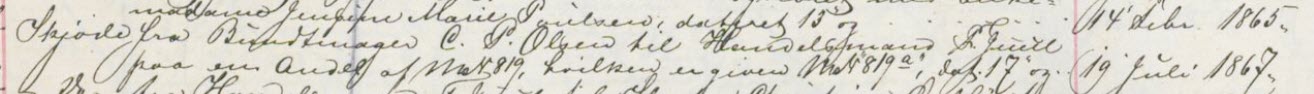 madame Jensine Marie Poulsen, dateret 15 og 14 Febr. 1865.
Skjöde fra Bundtmager C. P. Olsen til Handelsmand F. Juul
paa en Andel af Mat. № 819, hvilken er given Mat. № 819a, dat. 17 og 19 Juli 1867.